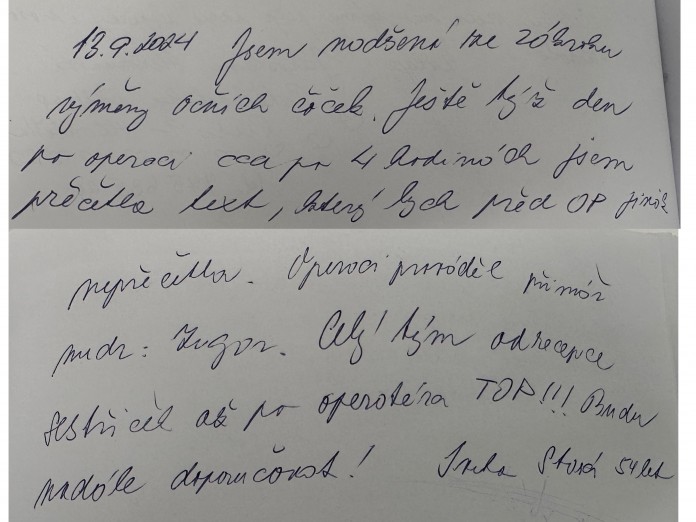 13.9.2024 Jsem nadšená ze zákroku
výměny očních čoček. Ještě týž den
po operaci cca po 4 hodinách jsem
přečetla text, který bych před OP jinak
nepřečetla. Operaci prováděl primář
mudr: Zugar. Celý tým od recepce
sestřiček až po operatéra TOP!!! Budu
nadále doporučovat! Stará 54 let